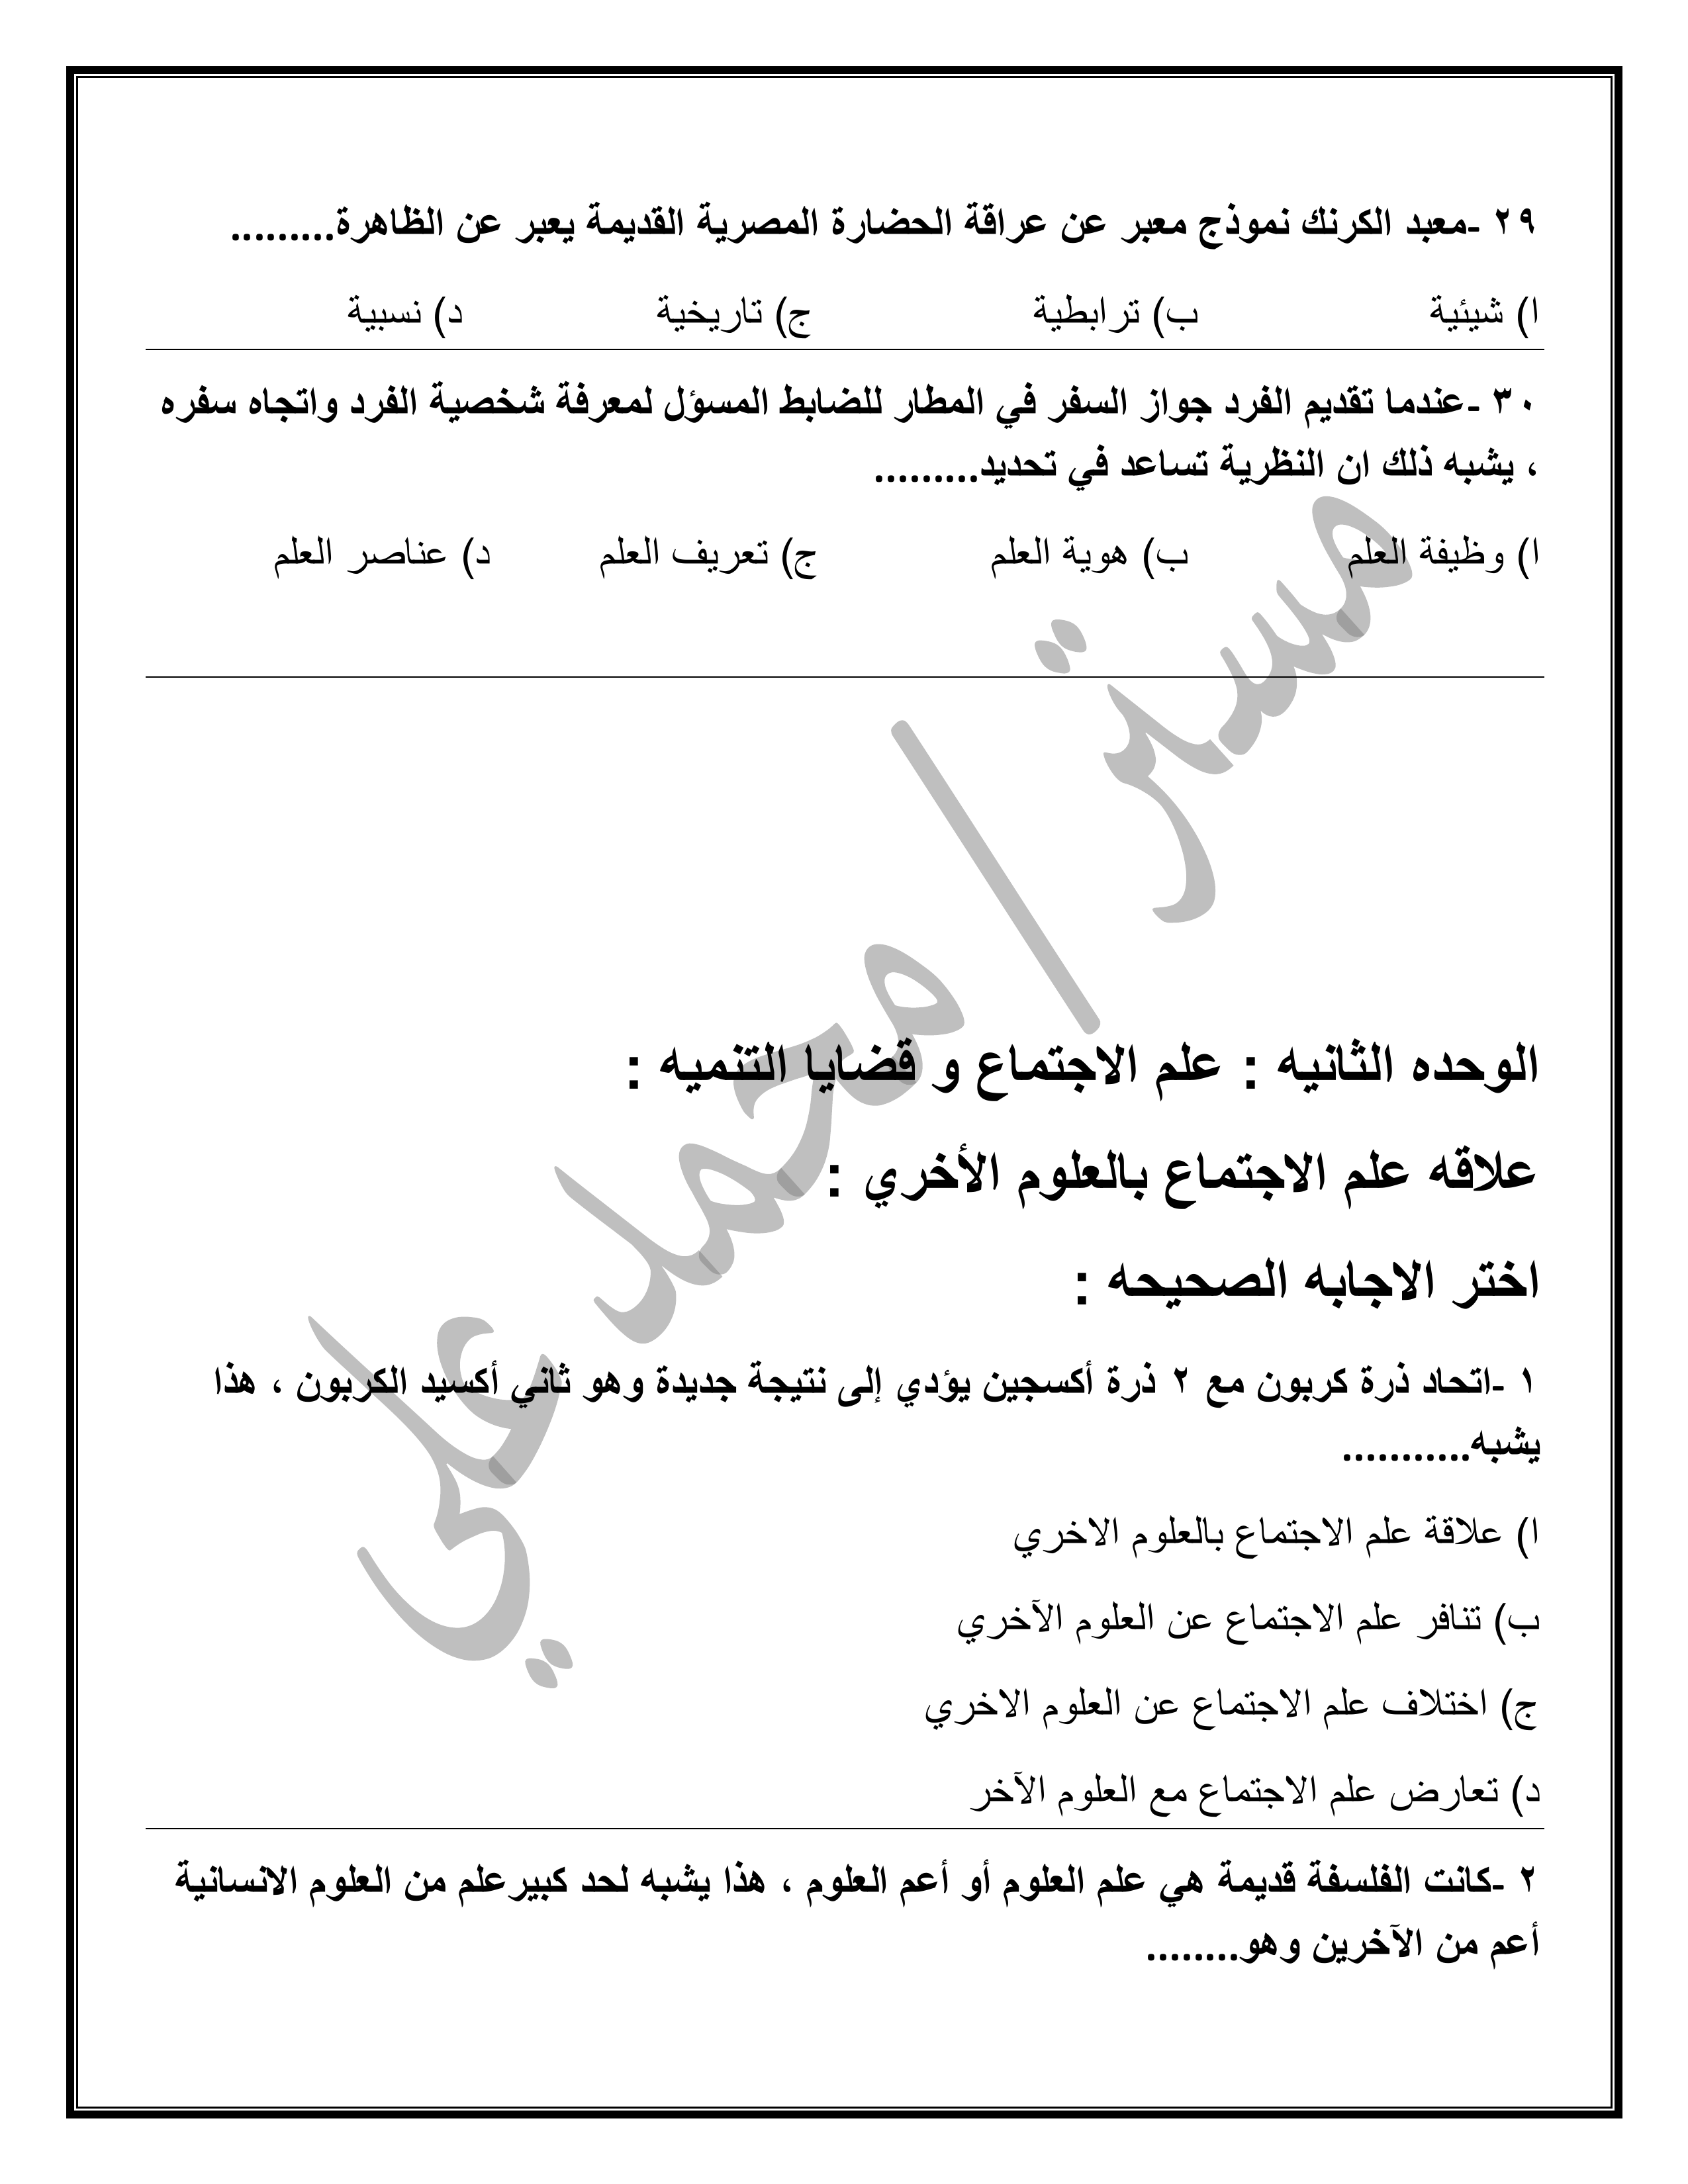 ٢٩ -معبد الكرنك نموذج معبر عن عراقة الحضارة المصرية القديمة يعبر عن الظاهرة.........
ا) شيئية ب) ترابطية ج) تاريخية د) نسبية
٣٠ -عندما تقديم الفرد جواز السفر في المطار للضابط المسؤل لمعرفة شخصية الفرد واتجاه سفره
، يشبه ذلك ان النظرية تساعد في تحديد.........
ا) وظيفة العلم ب) هوية العلم ج) تعريف العلم د) عناصر العلم
مستر / محمد علي
الوحده الثانيه : علم الاجتماع و قضايا التنميه :
علاقه علم الاجتماع بالعلوم الأخري :
اختر الاجابه الصحيحه :
١ -اتحاد ذرة كربون مع ٢ ذرة أكسجين يؤدي إلى نتيجة جديدة وهو ثاني أكسيد الكربون ، هذا
يشبه...........
ا) علاقة علم الاجتماع بالعلوم الاخري
ب) تنافر علم الاجتماع عن العلوم الآخري
ج) اختلاف علم الاجتماع عن العلوم الاخري
د) تعارض علم الاجتماع مع العلوم الآخر
٢ -كانت الفلسفة قديمة هي علم العلوم أو أعم العلوم ، هذا يشبه لحد كبيرعلم من العلوم الانسانية
أعم من الآخرين وهو........